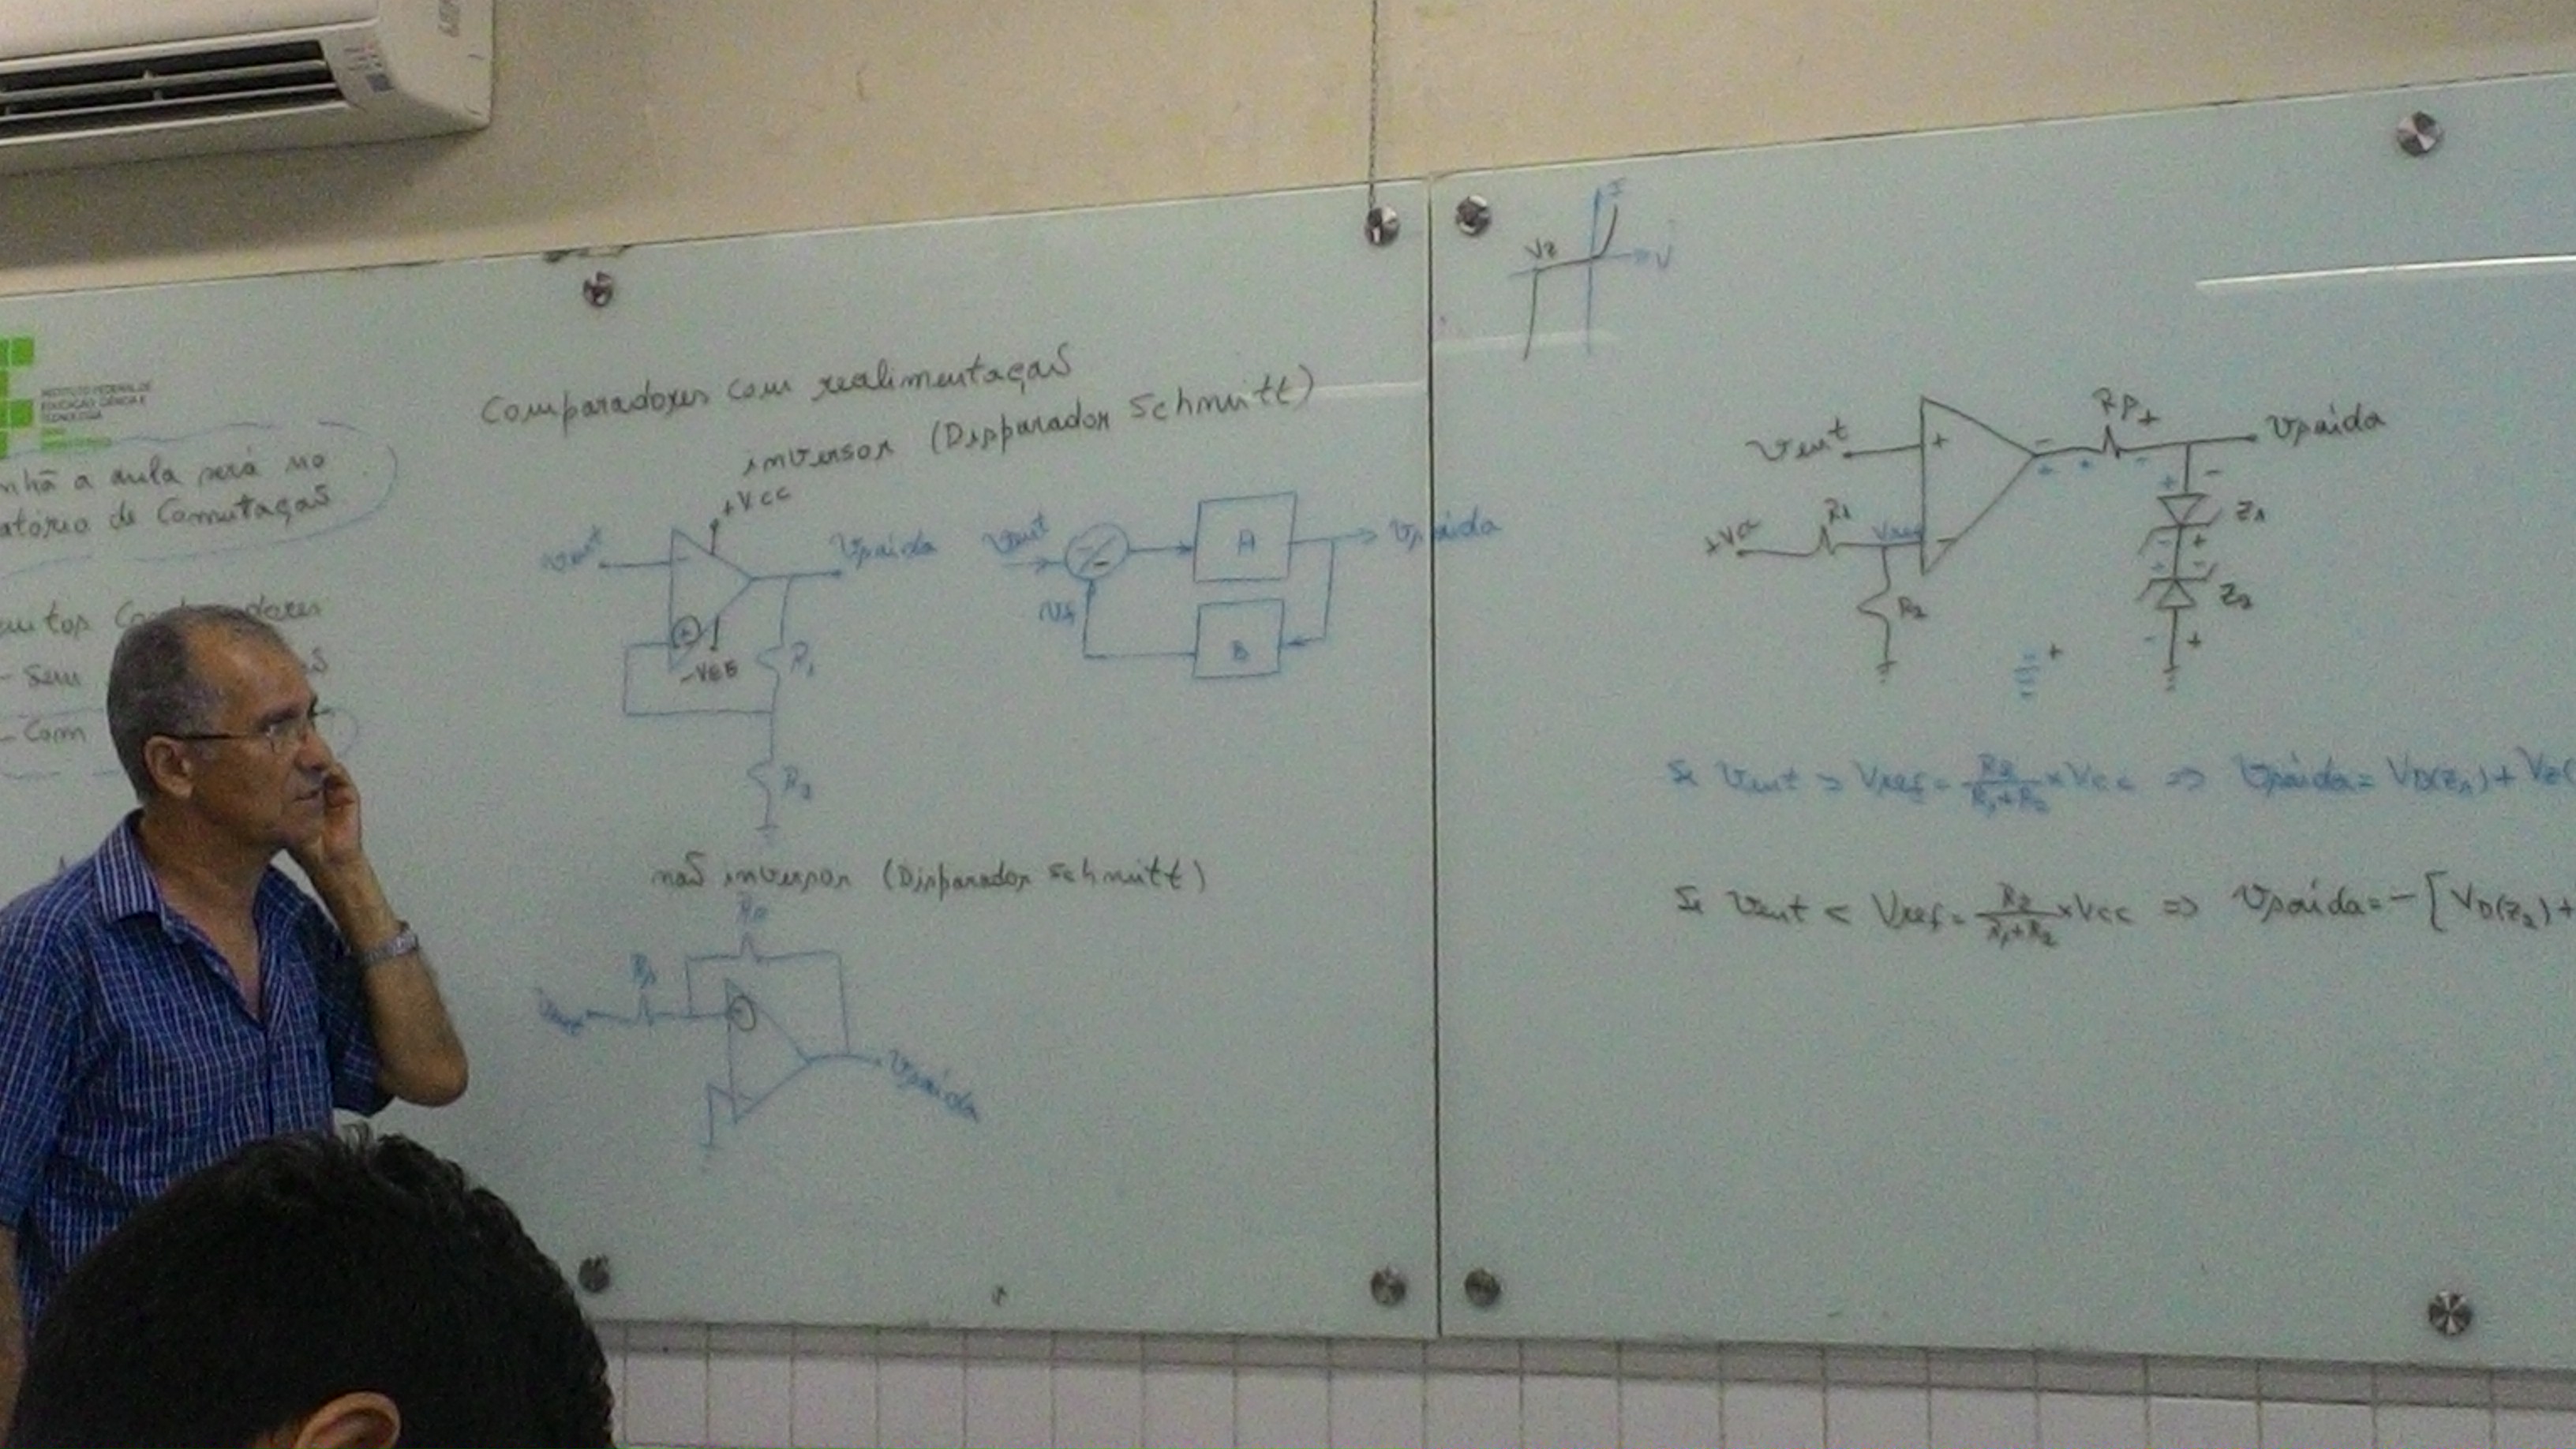 INSTITUTO FEDERAL DE
EDUCAÇÃO, CIÊNCIA E
TECNOLOGIA
nhã a aula será no
atório de Comutação
- Sem
- Com
Comparadores com realimentação
inversor (Disparador Schmitt)
+Vcc
vent
-
vsaída
+
-VEE
R1
R2
vent
A
vsaída
vf
B
não inversor (Disparador Schmitt)
R2
R1
+
vsaída
I
Vz
V
vent
+
RP
vsaída
+Vcc
R1
Vref
-
R2
Z1
Z2
Se vent > Vref = R2/R1+R2 x Vcc => vsaída = VD(Z1) + VZ(
Se vent < Vref = R2/R1+R2 x Vcc => vsaída = - [VD(Z2) +